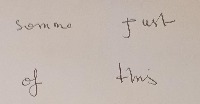 somme just
of this